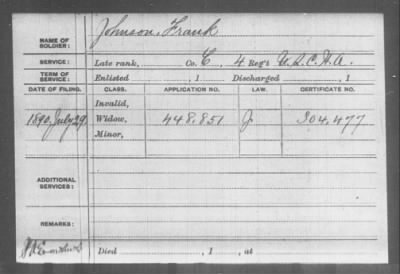 NAME OF SOLDIER: Johnson, Frank
SERVICE: Late rank, Co. C, 4 Reg't U.S.C.H.A.
TERM OF SERVICE: Enlisted , 1 Discharged , 1
DATE OF FILING. CLASS. APPLICATION NO. LAW. CERTIFICATE NO.
Invalid,
1890. July 29 Widow, 448.851 J 304.477
Minor,
ADDITIONAL SERVICES:
REMARKS:
Died , 1 , at